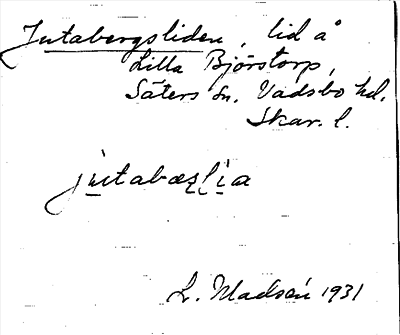 Jutabergsliden, lid å
Lilla Björstorp,
Säters sn. Vadsbo hd.
Skar. l.
jutabæʀ̣lia
L. Madsén 1931